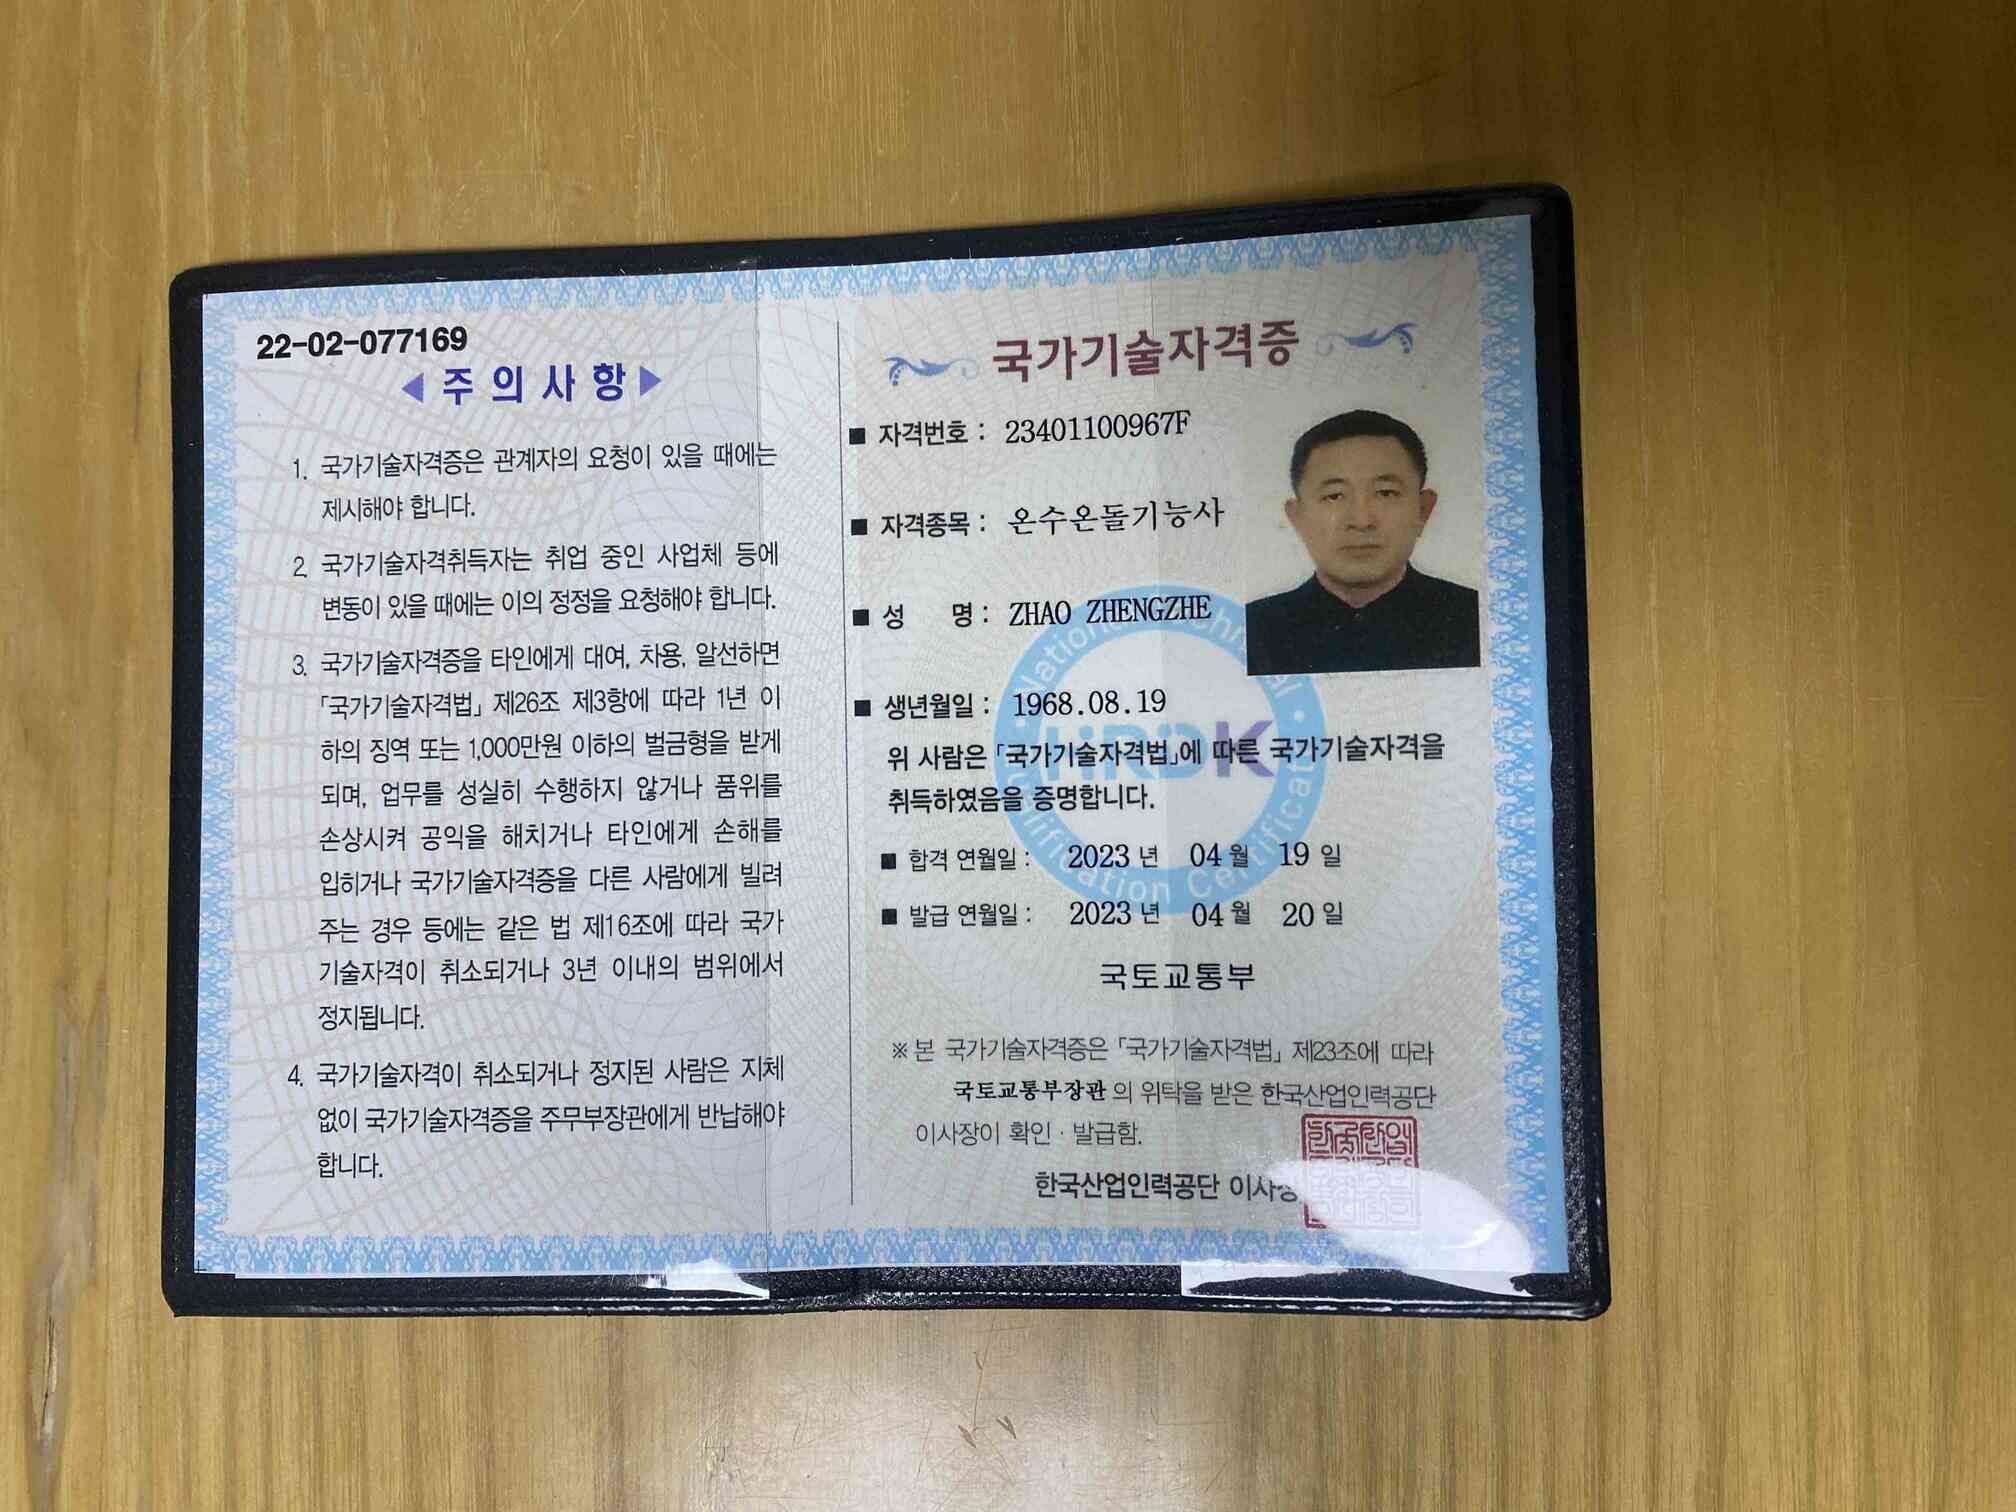 22-02-077169
◀ 주 의 사 항 ▶
1. 국가기술자격증은 관계자의 요청이 있을 때에는
제시해야 합니다.
2. 국가기술자격취득자는 취업 중인 사업체 등에
변동이 있을 때에는 이의 정정을 요청해야 합니다.
3. 국가기술자격증을 타인에게 대여, 차용, 알선하면
「국가기술자격법」 제26조 제3항에 따라 1년 이
하의 징역 또는 1,000만원 이하의 벌금형을 받게
되며, 업무를 성실히 수행하지 않거나 품위를
손상시켜 공익을 해치거나 타인에게 손해를
입히거나 국가기술자격증을 다른 사람에게 빌려
주는 경우 등에는 같은 법 제16조에 따라 국가
기술자격이 취소되거나 3년 이내의 범위에서
정지됩니다.
4. 국가기술자격이 취소되거나 정지된 사람은 지체
없이 국가기술자격증을 주무부장관에게 반납해야
합니다.
국가기술자격증
■ 자격번호 : 23401100967F
■ 자격종목 : 온수온돌기능사
■ 성 명 : ZHAO ZHENGZHE
■ 생년월일 : 1968.08.19
위 사람은 「국가기술자격법」에 따른 국가기술자격을
취득하였음을 증명합니다.
HRDK
■ 합격 연월일 : 2023 년 04 월 19 일
■ 발급 연월일 : 2023 년 04 월 20 일
국토교통부
※ 본 국가기술자격증은 「국가기술자격법」 제23조에 따라
국토교통부장관 의 위탁을 받은 한국산업인력공단
이사장이 확인 · 발급함.
한국산업인력공단 이사장